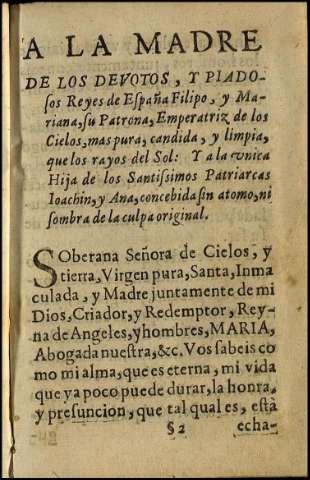 A LA MADRE
DE LOS DEVOTOS, Y PIADO-
sos Reyes de España Filipo, y Ma-
riana, su Patrona, Emperatriz de los
Cielos, mas pura, candida, y limpia,
que los rayos del Sol: Y a la vnica
Hija de los Santissimos Patriarcas
Ioachin, y Ana, concebida sin atomo, ni
sombra de la culpa original.
SOberana Señora de Cielos, y
tierra, Virgen pura, Santa, Inma
culada, y Madre juntamente de mi
Dios, Criador, y Redemptor, Rey-
na de Angeles, y hombres, MARIA,
Abogada nuestra, &c. Vos sabeis co
mo mi alma, que es eterna, mi vida
que ya poco puede durar, la honra,
y presuncion, que tal qual es, està
§2 echa-